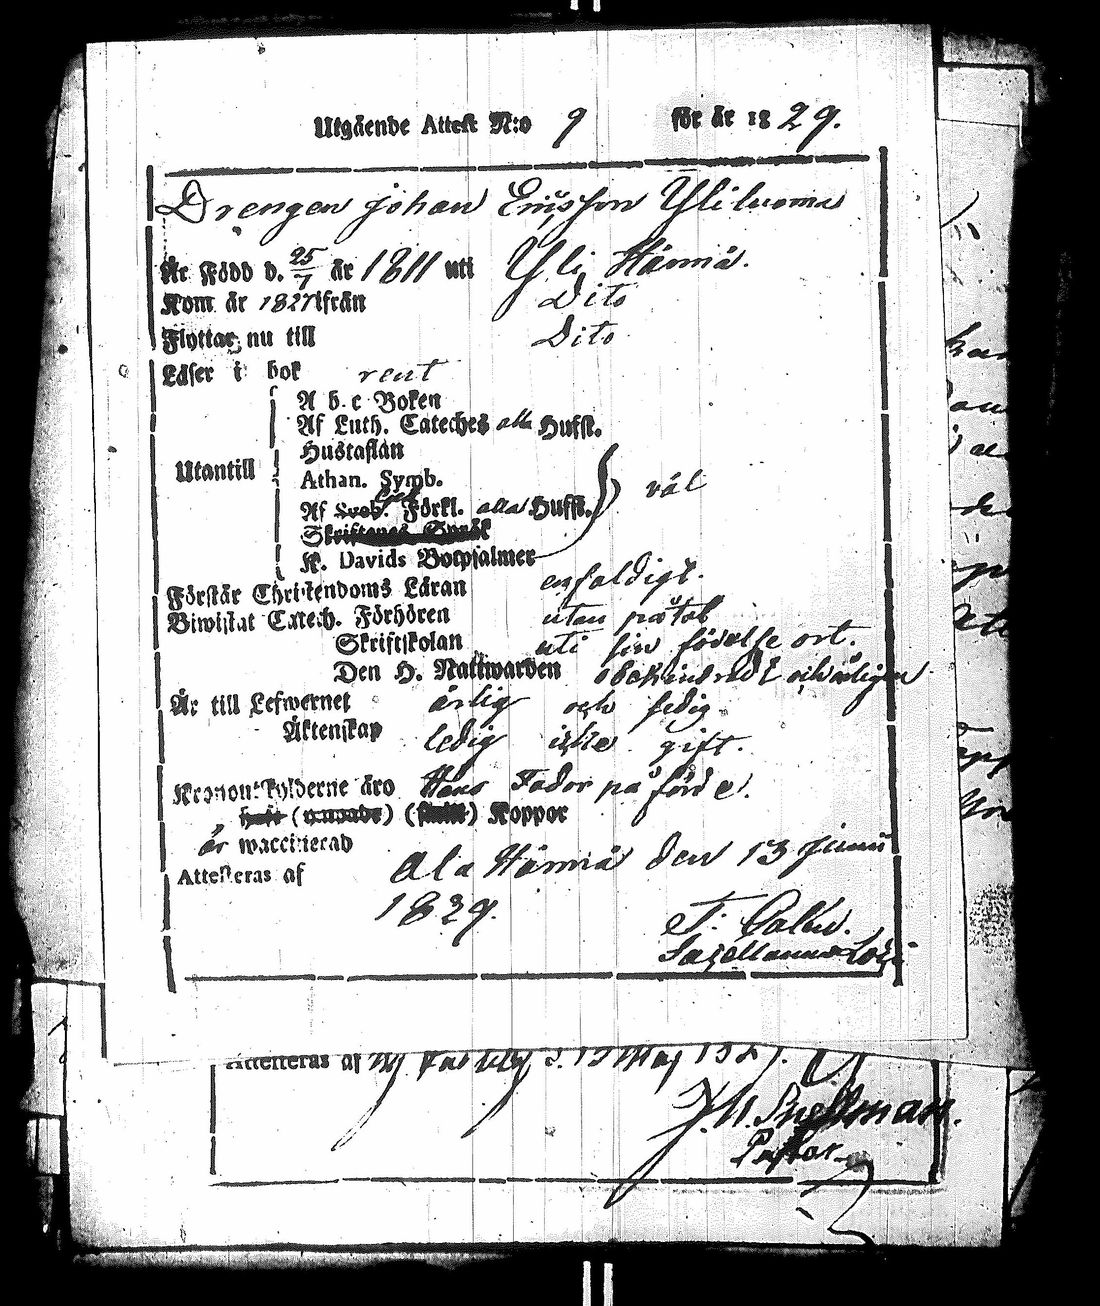 Utgående Attest N:o 9 för år 1829.
Drengen Johan Ericsson Yliluoma
Är Född d. 25/7 år 1811 uti Yli Härmä.
Kom år 1827 ifrån Dito
Flyttar nu till Dito
Läser i bok rent
A b c Boken
Af Luth. Cateches alla Hufst.
Hustaflan
Utantill
Athan. Symb.
väl
Af Sveb. Förkl. alla Hufst.
Skriftenes Språk
K. Davids Botpsalmer
Förstår Christendoms Läran enfaldigt.
Biwistat Catech. Förhören utan påtal
Skriftskolan uti sin födelse ort.
Den H. Nattwarden obehindradt och årligen
Är till Lefwernet ärlig och sedig
Äktenskap ledig icke gift.
Kronoutskylderne äro Hans Fader påförde.
haft () () Koppor
är waccinerad
Attesteras af Ala Härmä den 13 Junii
1829.
Attesteras af d. 13 Maj 182
J. W. Snellman.
Pastor